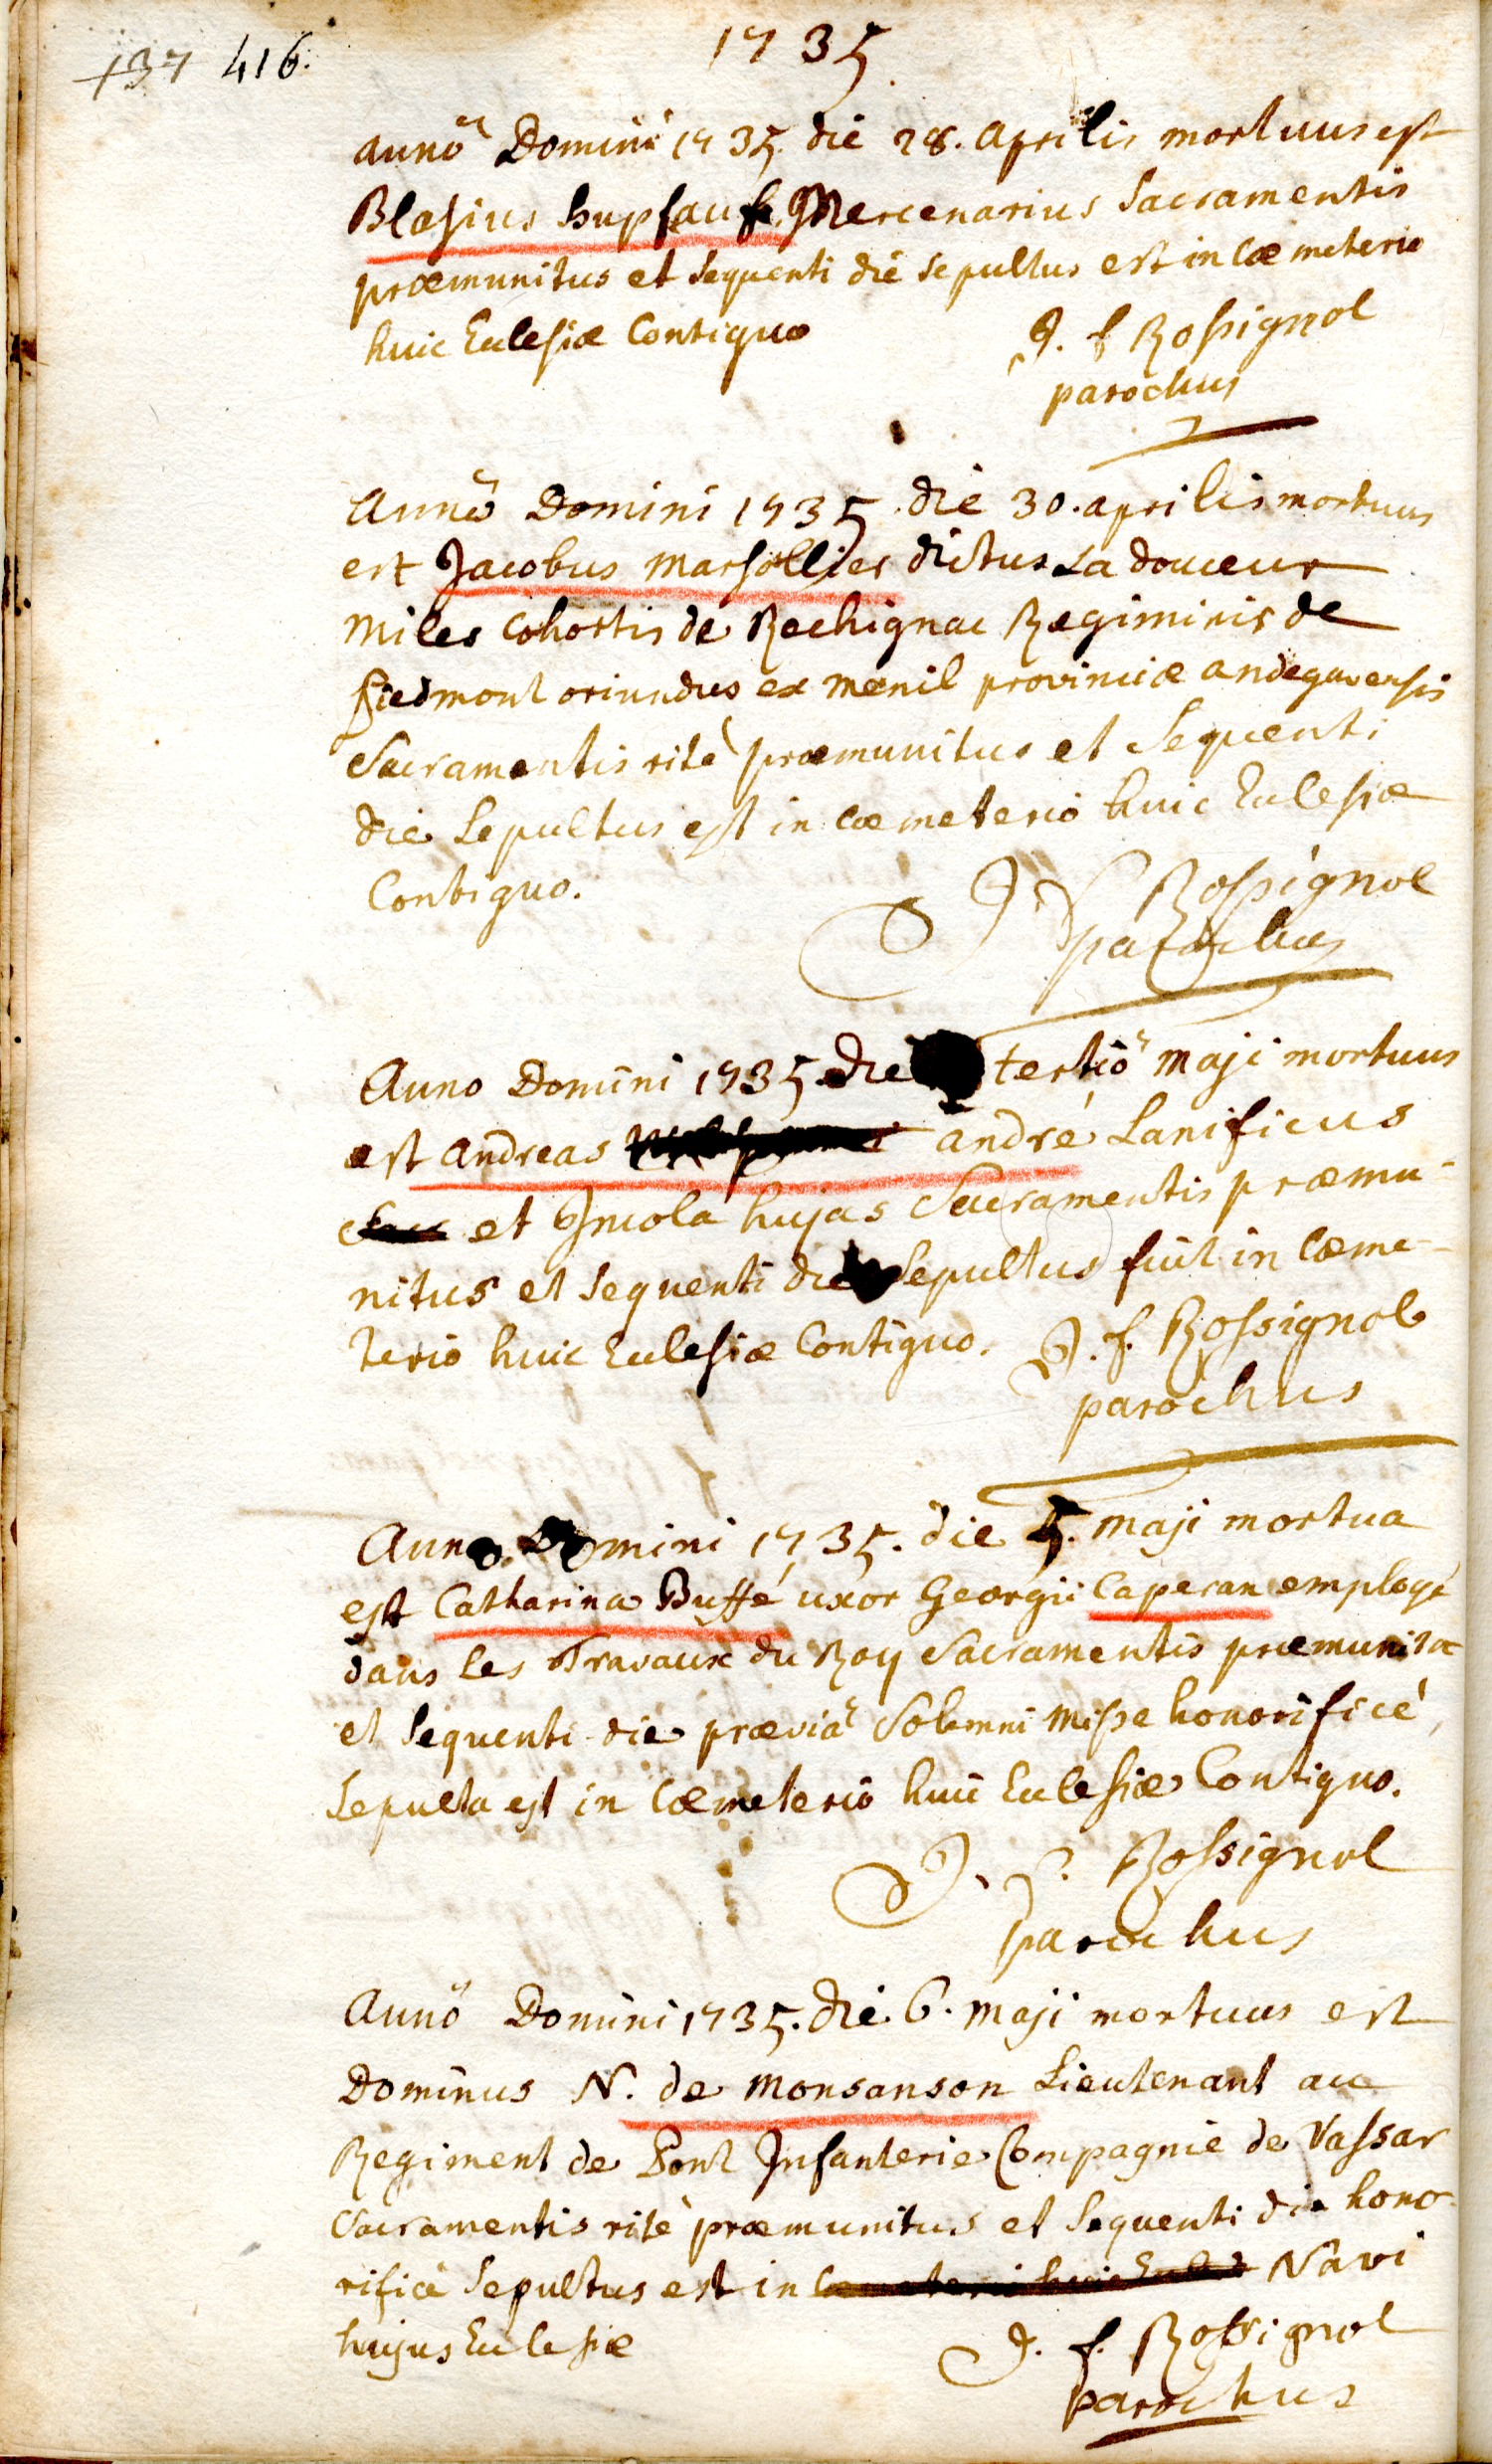 137 416.
1735.
annô Domini 1735. die 28. aprilis mortuus est
Blasius hupfauf Mercenarius Sacramentis
præmunitus et sequenti die sepultus est in Cœmeterio
huic Eclesiæ Contiguo
J. f Rossignol
parochus
Annô Domini 1735 die 30. aprilis mortuus
est Jacobus marsollier dictus La douceur
miles cohortis de Rechignac Regiminis de
piedmont oriundus ex menil provinciæ andegavensis
Sacramentis ritè præmunitus et Sequenti
die Sepultus est in Cœmeterio huic Eclesiæ
Contiguo.
J. f Rossignol
parochus
Anno Domini 1735. die tertiô maji mortuus
est andreas andré Lanificus
et Incola hujas Sacramentis præmu-
nitus et sequenti die Sepultus fuit in Cœme-
terio huic Eclesiæ Contiguo. J. f. Rossignol
parochus
Anno. Domini 1735. die 5. maji mortua
est Catharina Buffé uxor Georgii Caperan employé
dans les Travaux du Roy Sacramentis præmunita
et sequenti die præviâ Solemni misse honorificè
Sepulta est in Cœmeterio huic Eclesiæ Contiguo.
J. f. Rossignol
parochus
Annô Domini 1735. die 6. maji mortuus est
Dominus N. de monsanson Lieutenant au
Regiment de Pont Infanterie Compagnie de Vassar
Sacramentis ritè præmunitus et Sequenti die hono-
rificè Sepultus est in Navi
hujus Eclesiæ
J. f. Rossignol
parochus